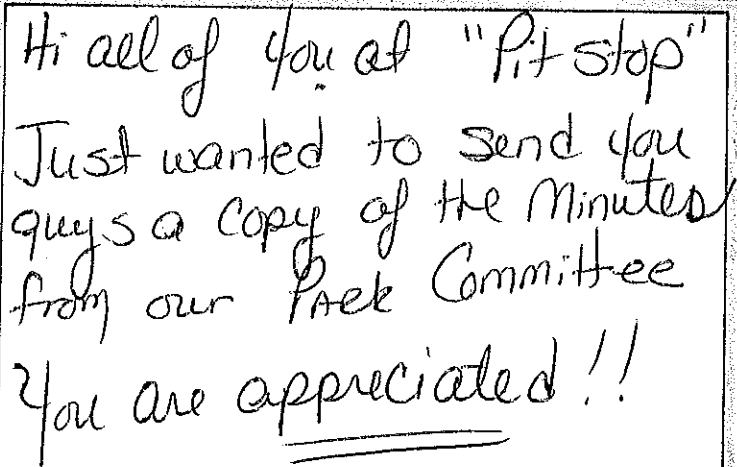 Hi all of you at "Pit stop"
Just wanted to send you
guys a copy of the Minutes
from our Park Committee
You are appreciated!!